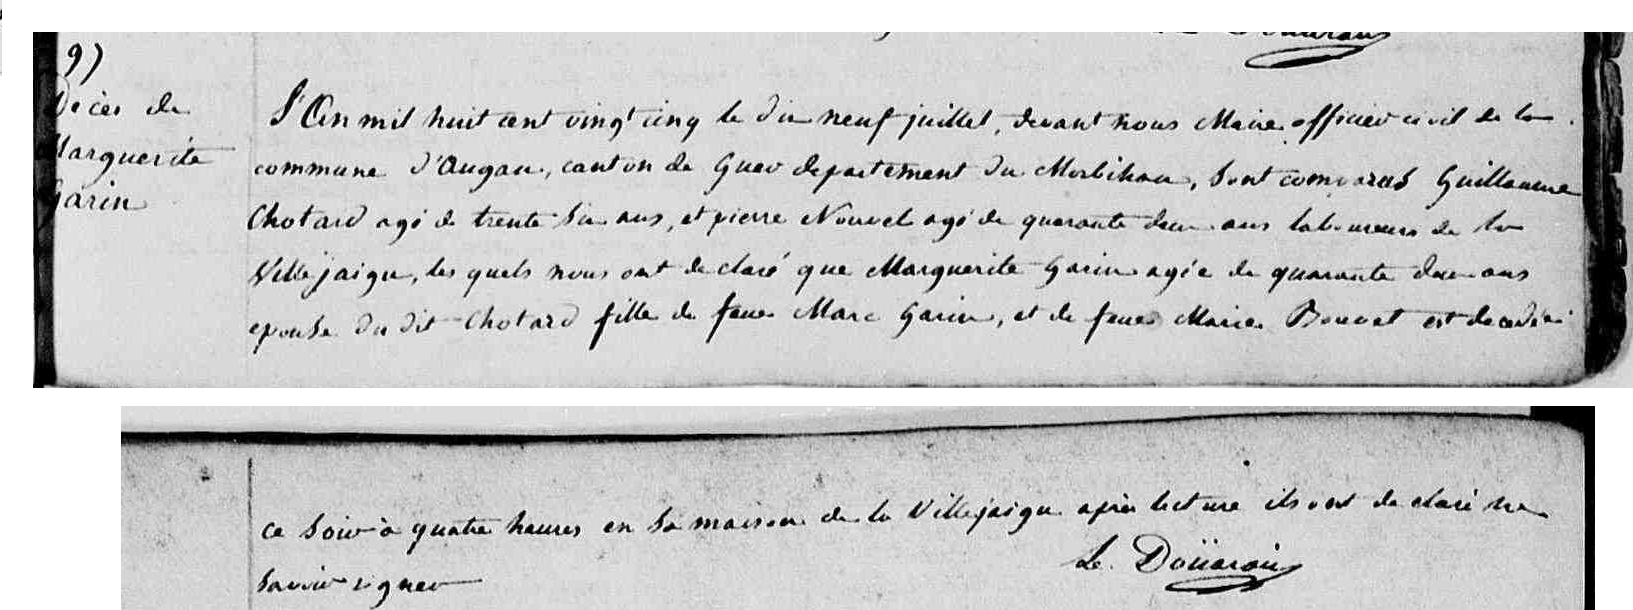 9)
Décès de
Marguerite
Garin
L'An mil huit cent vingt cinq le dix neuf juillet, devant nous Maire officier civil de la
commune d'Augan, canton de Guer departement du Morbihan, Sont comparus Guillaume
Chotard agé de trente Six ans, et pierre Nouvel agé de quarante deux ans laboureurs de la
Ville jaigu, les quels nous ont declaré que Marguerite Garin agée de quarante deux ans
epouse du dit Chotard fille de feue Marc Garin, et de feue Marie Bouvet est decedée
ce Soir à quatre heures en Sa maison de la Ville jaigu après lecture ils ont declaré ne
Savoir signer
Le Doüarain